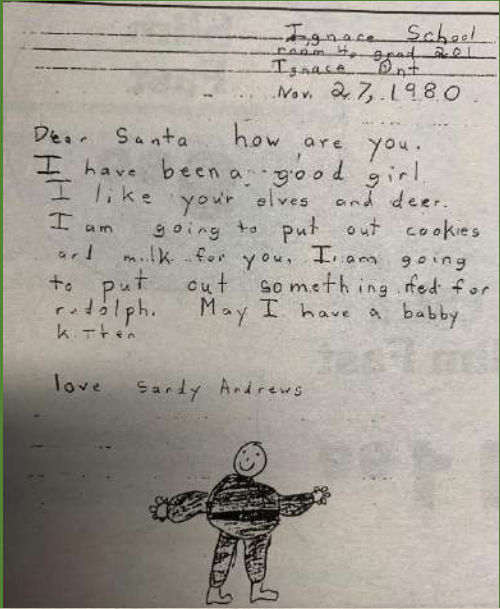 Ignace School
room 4, grad 201
Ignace Ont
Nov. 27, 1980
Dear Santa how are you.
I have been a good girl.
I like your elves and deer.
I am going to put out cookies
and milk for you, I am going
to put out something red for
rudolph. May I have a babby
kitten
love Sandy Andrews